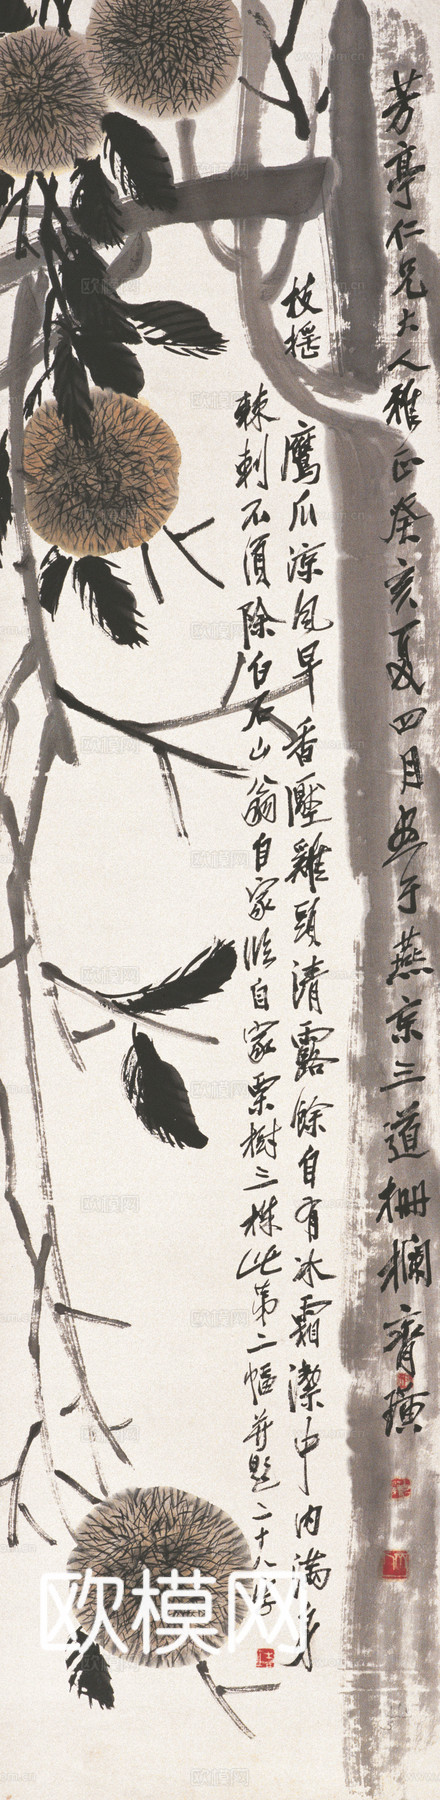 芳亭仁兄大人雅正癸亥夏四月畫于燕京三道柵欄齊璜
枝摇鷹爪涼風早香壓雞頭清露餘自有冰霜潔中内滿身
棘刺不須除白石山翁自家臨自家栗樹三株此第二幅并題二十八字
欧模网